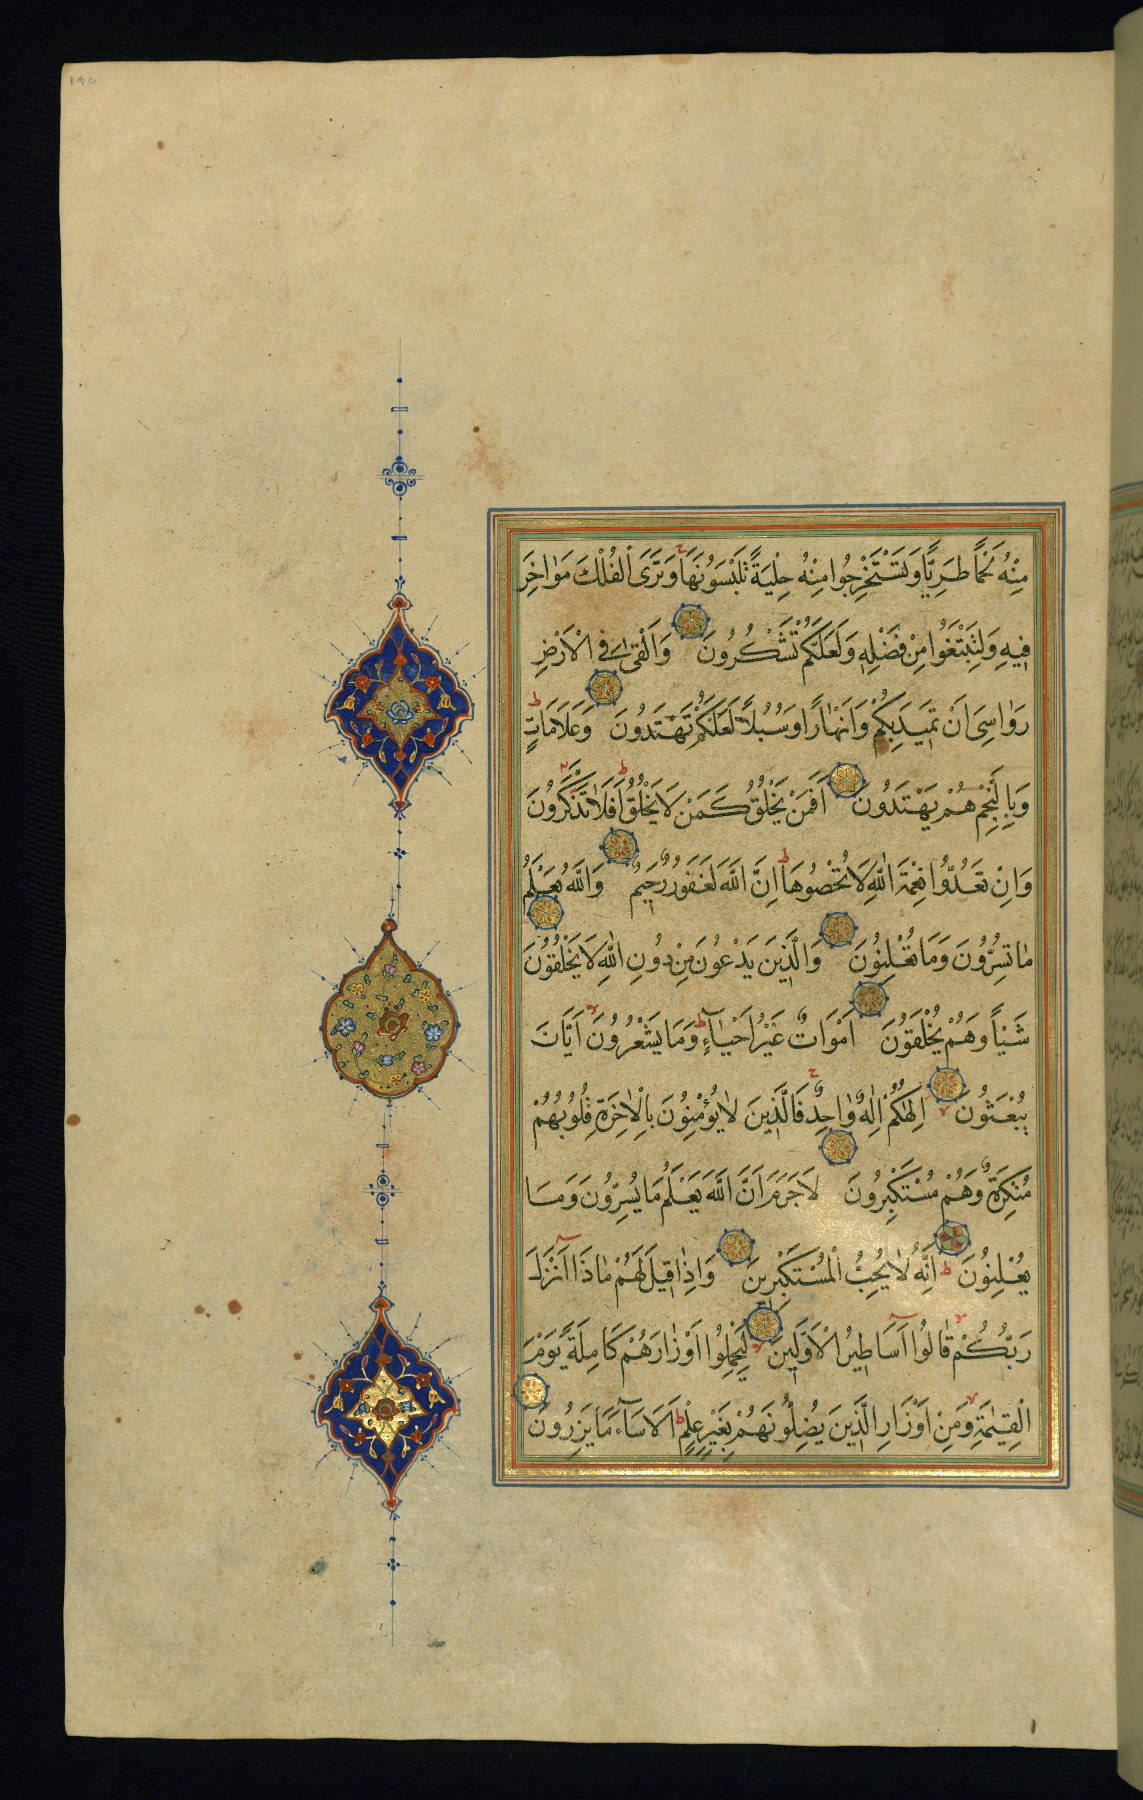 مِنْهُ لَحْمًا طَرِيًّا وَتَسْتَخْرِجُوا مِنْهُ حِلْيَةً تَلْبَسُونَهَا وَتَرَى الْفُلْكَ مَوَاخِرَ
فِيهِ وَلِتَبْتَغُوا مِنْ فَضْلِهِ وَلَعَلَّكُمْ تَشْكُرُونَ وَاَلْقٰى فِي الْاَرْضِ
رَوَاسِىَ اَنْ تَمِيدَ بِكُمْ وَاَنْهَارًا وَسُبُلًا لَعَلَّكُمْ تَهْتَدُونَ وَعَلَامَاتٍ
وَبِالنَّجْمِ هُمْ يَهْتَدُونَ اَفَمَنْ يَخْلُقُ كَمَنْ لَا يَخْلُقُ اَفَلَا تَذَكَّرُونَ
وَاِنْ تَعُدُّوا نِعْمَةَ اللّٰهِ لَا تُحْصُوهَا اِنَّ اللّٰهَ لَغَفُورٌ رَحِيمٌ وَاللّٰهُ يَعْلَمُ
مَا تُسِرُّونَ وَمَا تُعْلِنُونَ وَالَّذِينَ يَدْعُونَ مِنْ دُونِ اللّٰهِ لَا يَخْلُقُونَ
شَيْئًا وَهُمْ يُخْلَقُونَ اَمْوَاتٌ غَيْرُ اَحْيَاءٍ وَمَا يَشْعُرُونَ اَيَّانَ
يُبْعَثُونَ اِلٰهُكُمْ اِلٰهٌ وَاحِدٌ فَالَّذِينَ لَا يُؤْمِنُونَ بِالْاٰخِرَةِ قُلُوبُهُمْ
مُنْكِرَةٌ وَهُمْ مُسْتَكْبِرُونَ لَا جَرَمَ اَنَّ اللّٰهَ يَعْلَمُ مَا يُسِرُّونَ وَمَا
يُعْلِنُونَ اِنَّهُ لَا يُحِبُّ الْمُسْتَكْبِرِينَ وَاِذَا قِيلَ لَهُمْ مَاذَا اَنْزَلَ
رَبُّكُمْ قَالُوا اَسَاطِيرُ الْاَوَّلِينَ لِيَحْمِلُوا اَوْزَارَهُمْ كَامِلَةً يَوْمَ
الْقِيٰمَةِ وَمِنْ اَوْزَارِ الَّذِينَ يُضِلُّونَهُمْ بِغَيْرِ عِلْمٍ اَلَا سَاءَ مَا يَزِرُونَ